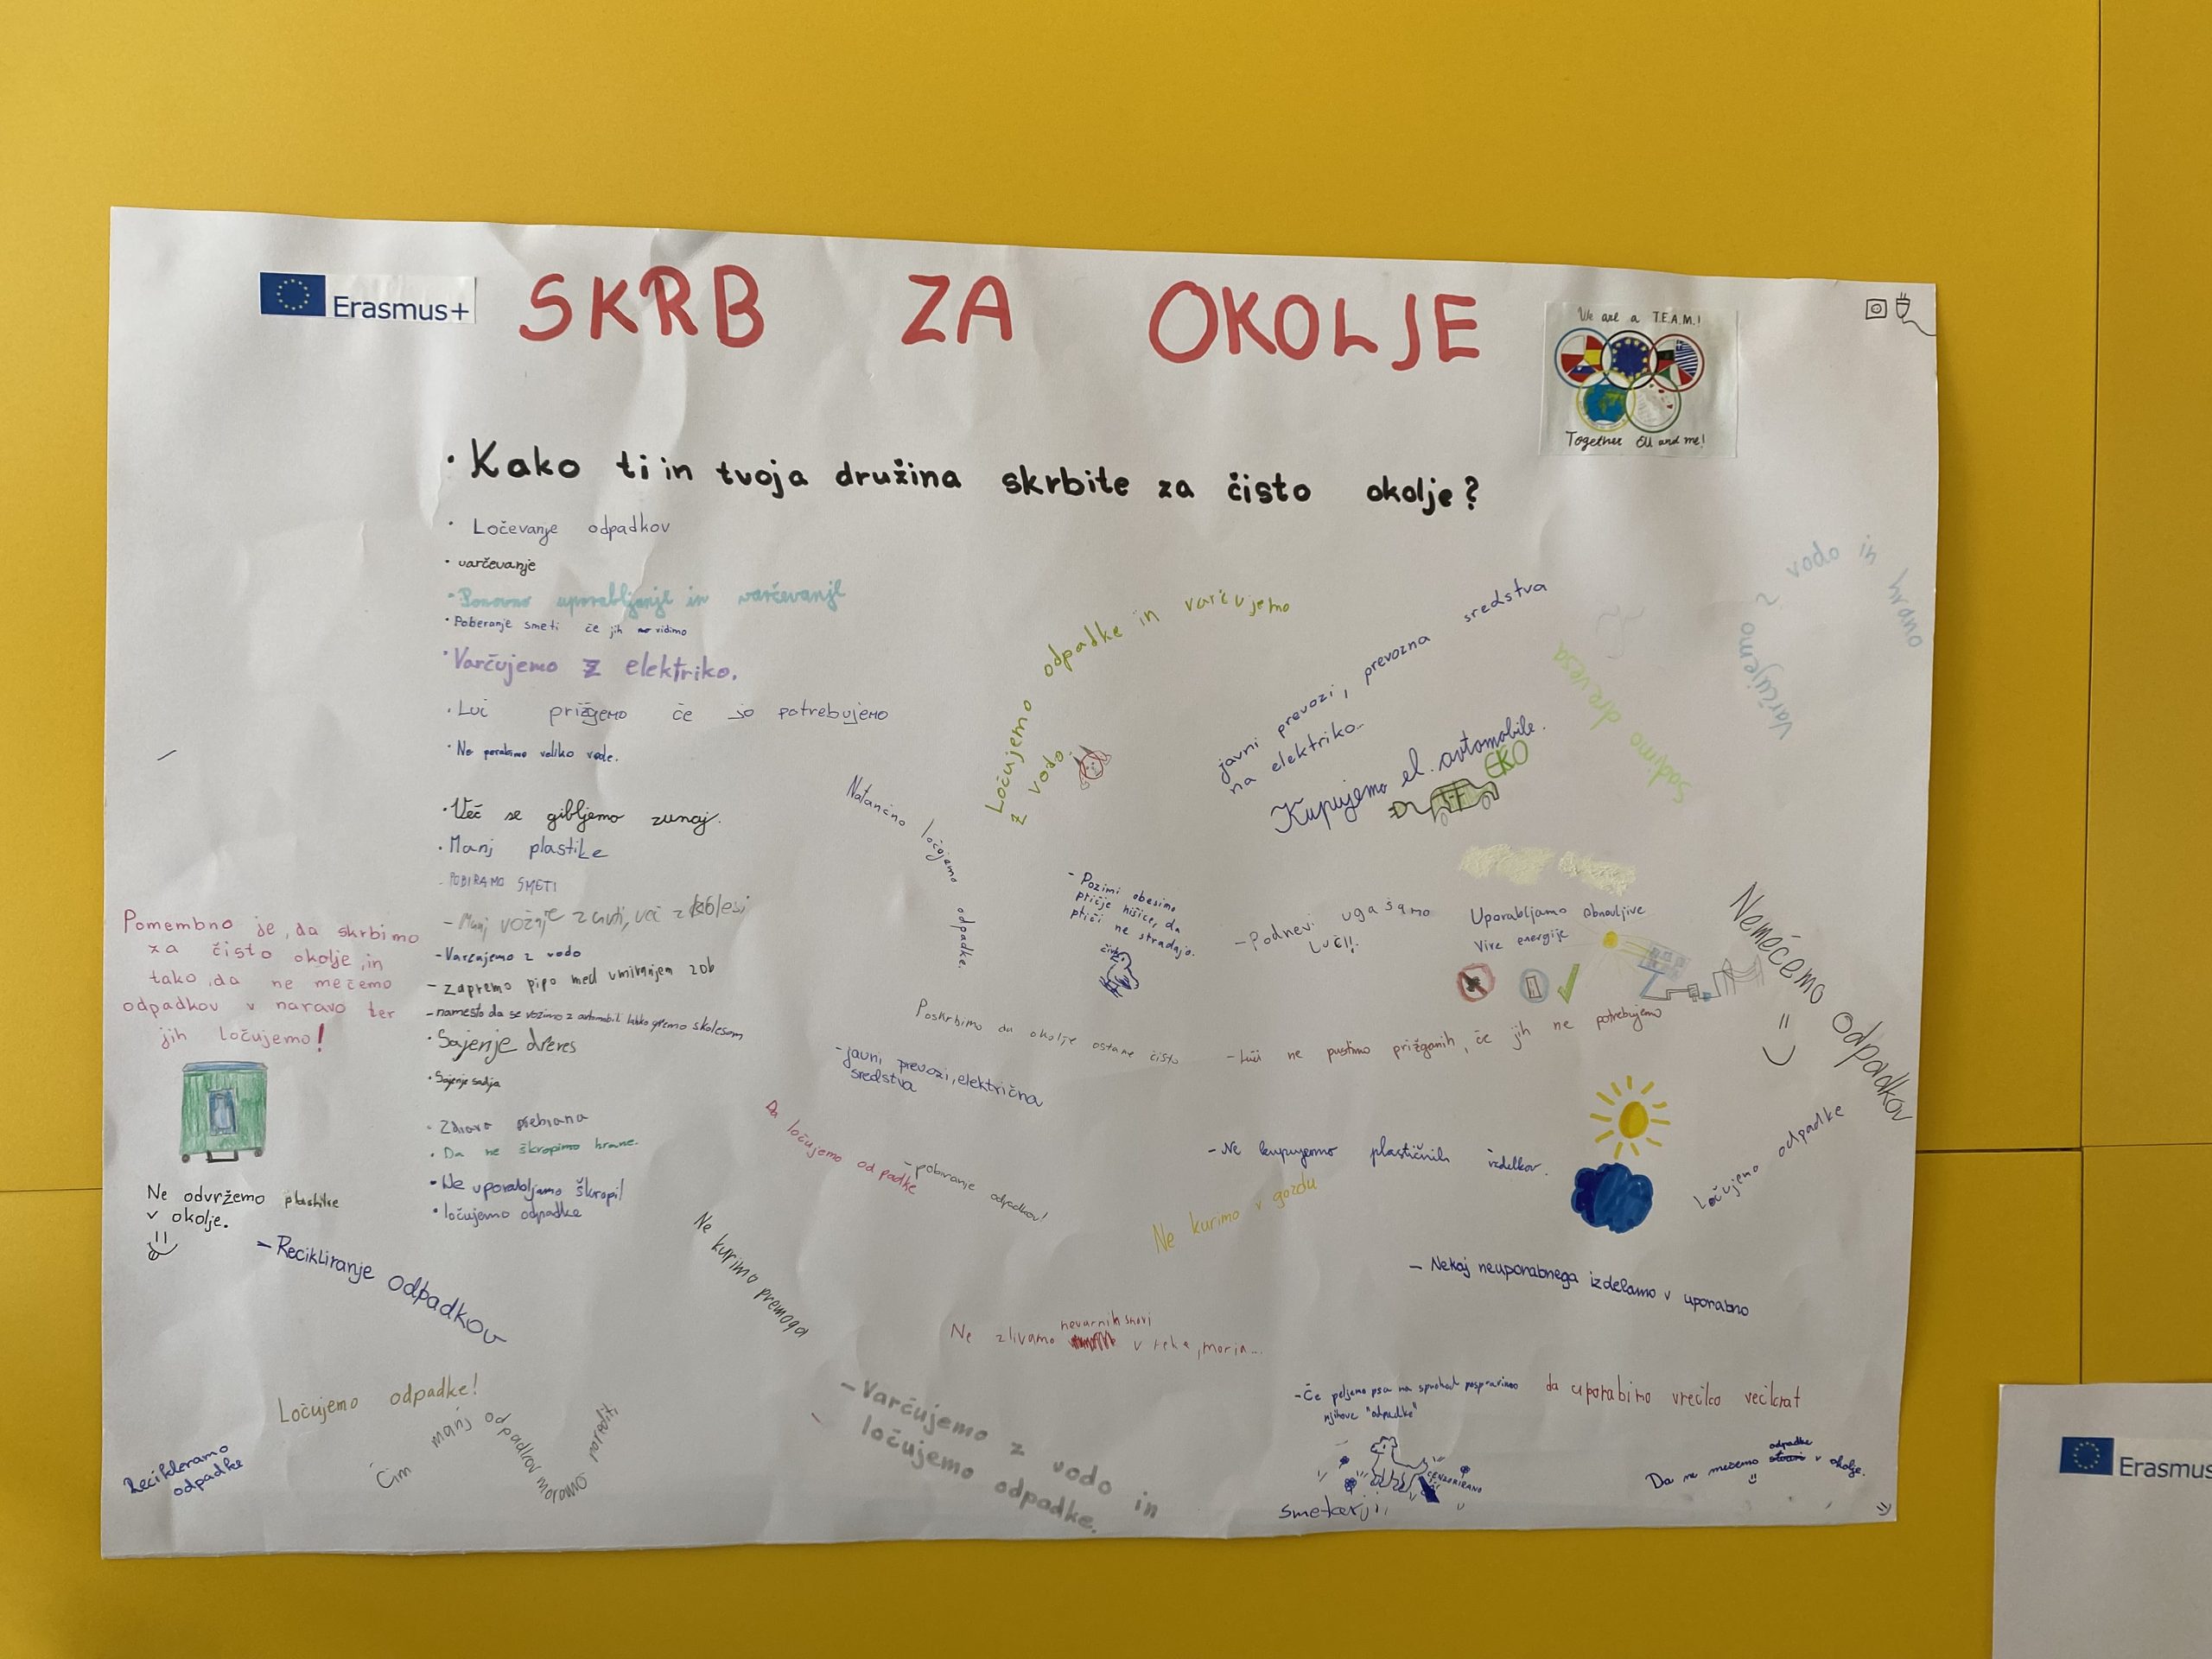 Erasmus+
SKRB ZA OKOLJE
We are a T.E.A.M.!
Together EU and me!
• Kako ti in tvoja družina skrbite za čisto okolje?
• Ločevanje odpadkov
• varčevanje
• Ponovno uporabljanje in varčevanje
• Poberanje smeti če jih vidimo
• Varčujemo z elektriko.
• Luč prižgemo če jo potrebujemo
• Ne porabimo veliko vode.
• Več se gibljemo zunaj.
• Manj plastike
• POBIRAMO SMETI
- Manj vožnje z avti, več z kolesi
- Varčujemo z vodo
- Zapremo pipo med umivanjem zob
- namesto da se vozimo z avtomobil lahko gremo s kolesom
• Sajenje dreves
• Sajenje sadja
• Zdrava prehrana
• Da ne škropimo hrane.
• Ne uporabljamo škropil
• ločujemo odpadke
Pomembno je, da skrbimo
za čisto okolje, in
tako, da ne mečemo
odpadkov v naravo ter
jih ločujemo!
Ne odvržemo plastike
v okolje.
- Recikliranje odpadkov
Ločujemo odpadke!
Recikleramo
odpadke
Čim manj odpadkov moramo narediti
Ločujemo odpadke in varčujemo
z vodo
Natančno ločujemo odpadke.
javni prevozi, prevozna sredstva
na elektriko..
Kupujemo el. avtomobile.
EKO
Sadimo drevesa
Varčujemo z vodo in hrano
- Pozimi obesimo
ptičje hišice, da
ptiči ne stradajo.
čiv
- Podnevi ugašamo
LUČI!!
Uporabljamo obnovljive
Vire energije
Nemečemo odpadkov
Poskrbimo da okolje ostane čisto
- Luči ne pustimo prižganih, če jih ne potrebujemo
- javni prevozi, električna
sredstva
Da ločujemo odpadke
- pobiranje odpadkov!
- Ne kupujemo plastičnih izdelkov.
Ne kurimo v gozdu
Ločujemo odpadke
Ne kurimo premoga
- Nekaj neuporabnega izdelamo v uporabno
Ne zlivamo nevarnih snovi v reke, morja...
- Varčujemo z vodo in
ločujemo odpadke.
- Če peljemo psa na sprehod pospravimo
njihove "odpadke"
da uporabimo vrečko večkrat
CENZURIRANO
smetarji
Da ne mečemo odpadke v okolje.
Erasmus